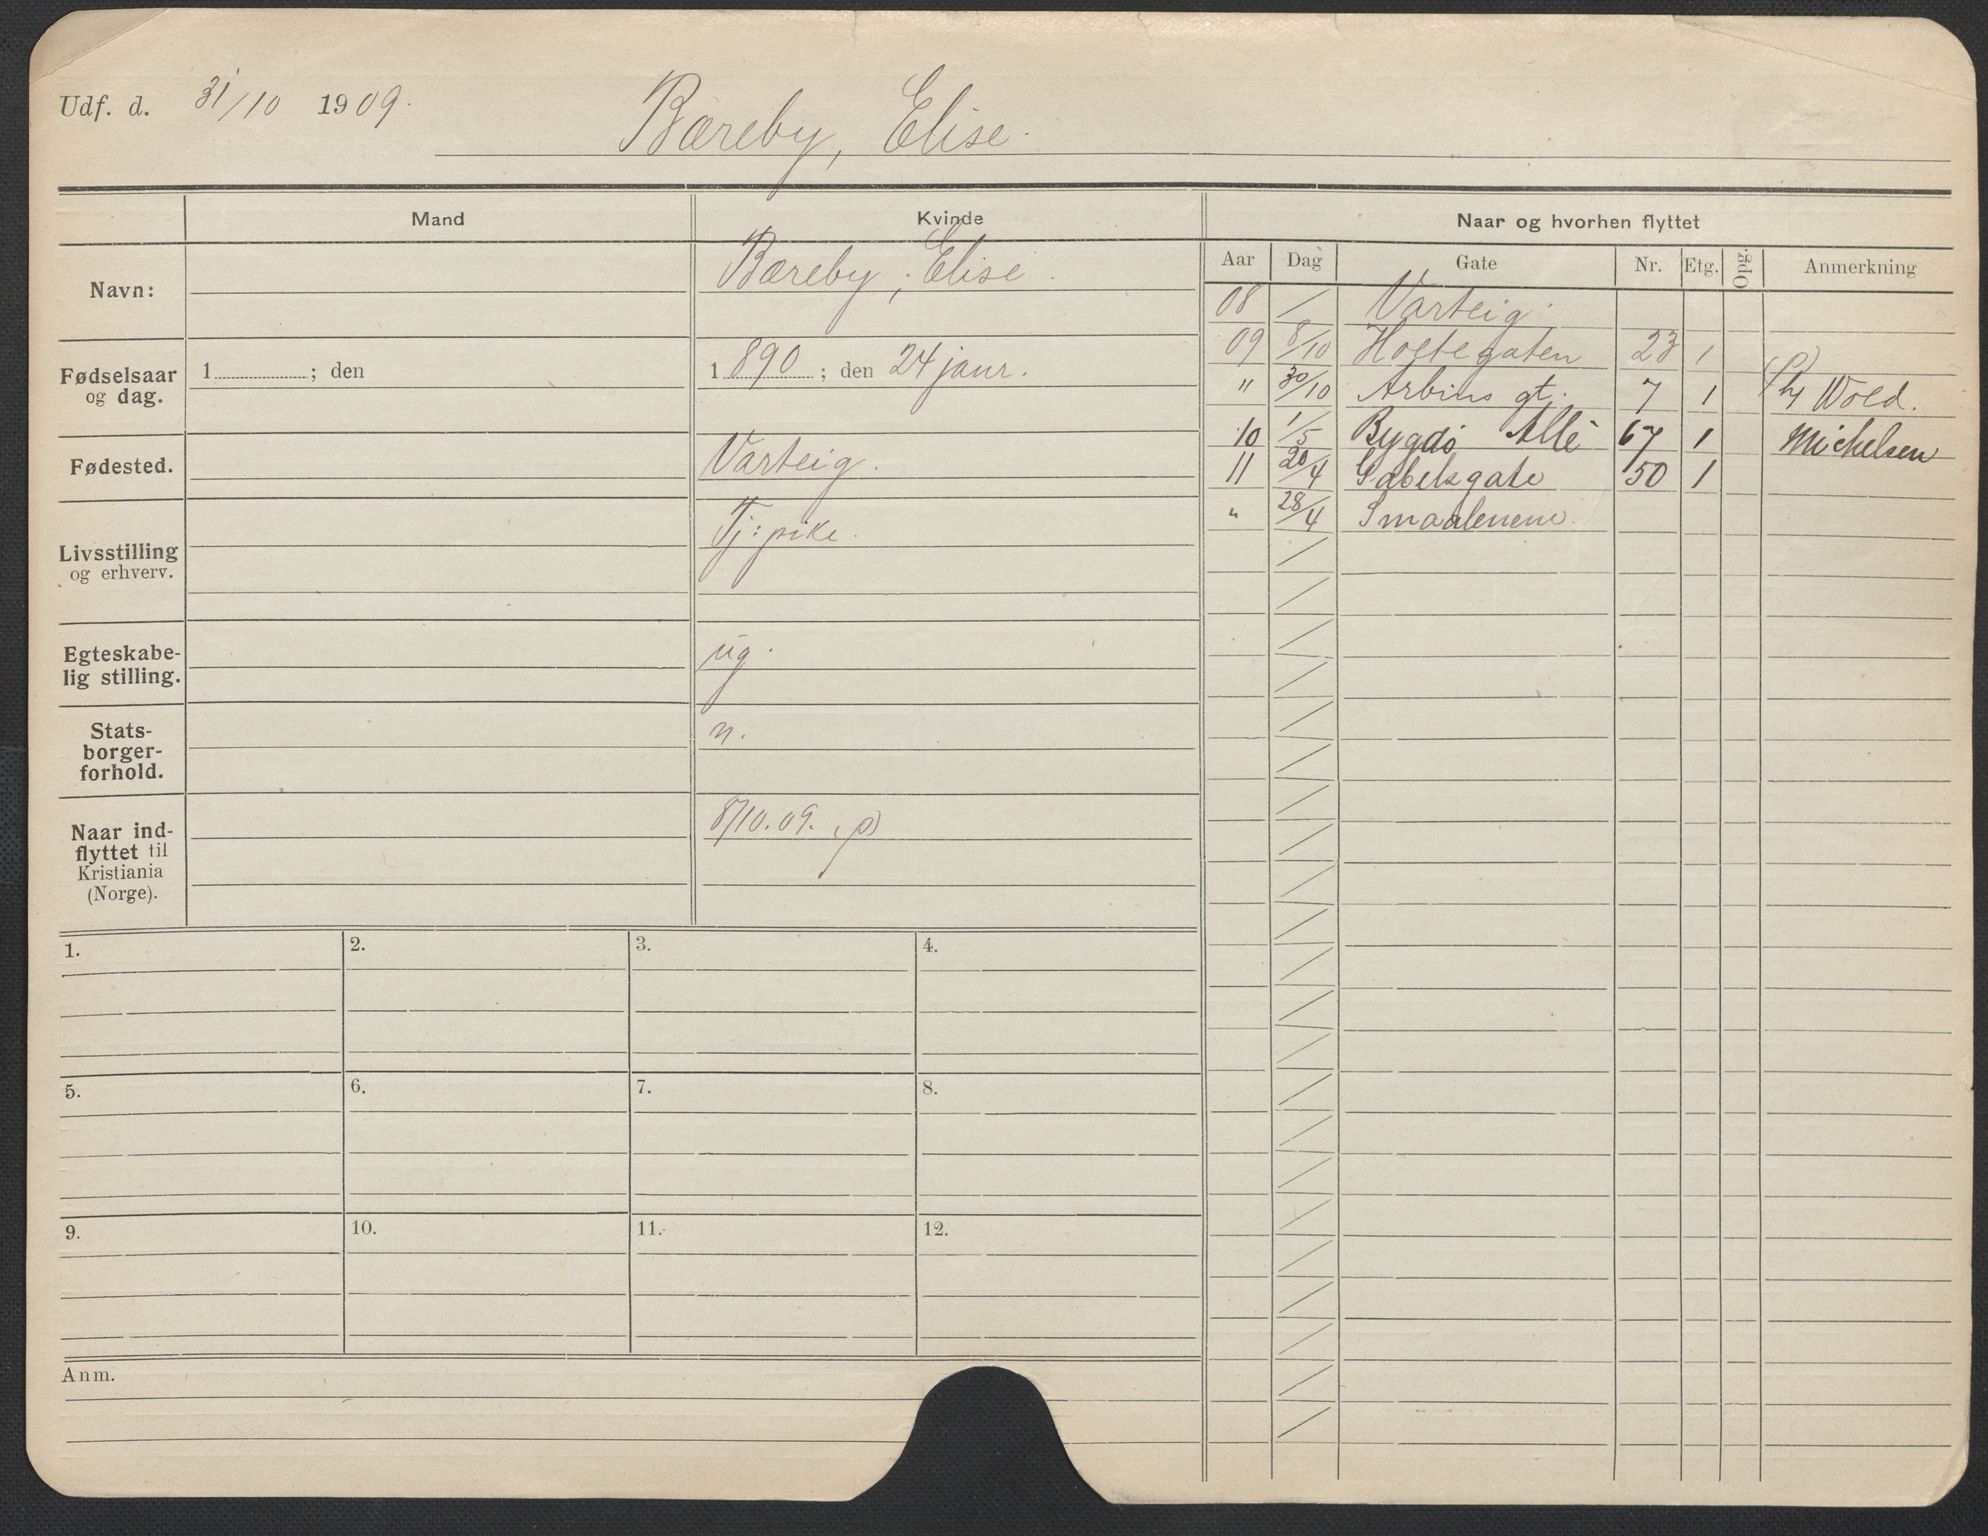 Udf. d. 31/10 1909.
Bæreby, Elise.
Mand
Kvinde
Naar og hvorhen flyttet
Aar Dag Gate Nr. Etg. Opg. Anmerkning
Navn:
Bæreby, Elise.
Fødselsaar
og dag.
1 ; den
1 890 ; den 24 janr.
Fødested.
Varteig.
Livsstilling
og erhverv.
Tj: pike.
Egteskabe-
lig stilling.
ug.
Stats-
borger-
forhold.
n.
Naar ind-
flyttet til
Kristiania
(Norge).
8/10.09. (p)
08 / Varteig.
09 8/10 Holtegaten 23 1
" 30/10 Arbins gt. 7 1 Wold.
10 1/5 Bygdö Allé 67 1 Michelsen
11 20/4 Gabelsgate 50 1
" 28/4 Smaalenene.
1. 2. 3. 4.
5. 6. 7. 8.
9. 10. 11. 12.
Anm.